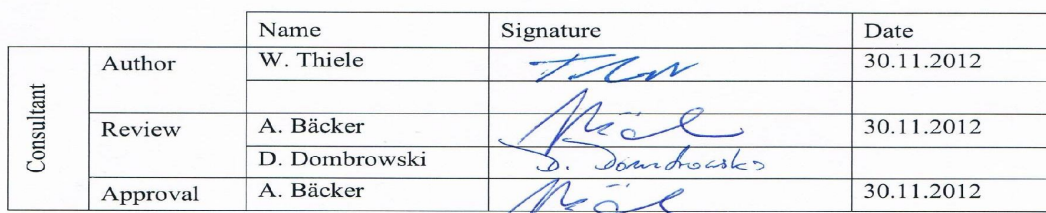 Name Signature Date
Consultant
Author W. Thiele 30.11.2012
Review A. Bäcker 30.11.2012
D. Dombrowski D. Dombrowski
Approval A. Bäcker 30.11.2012